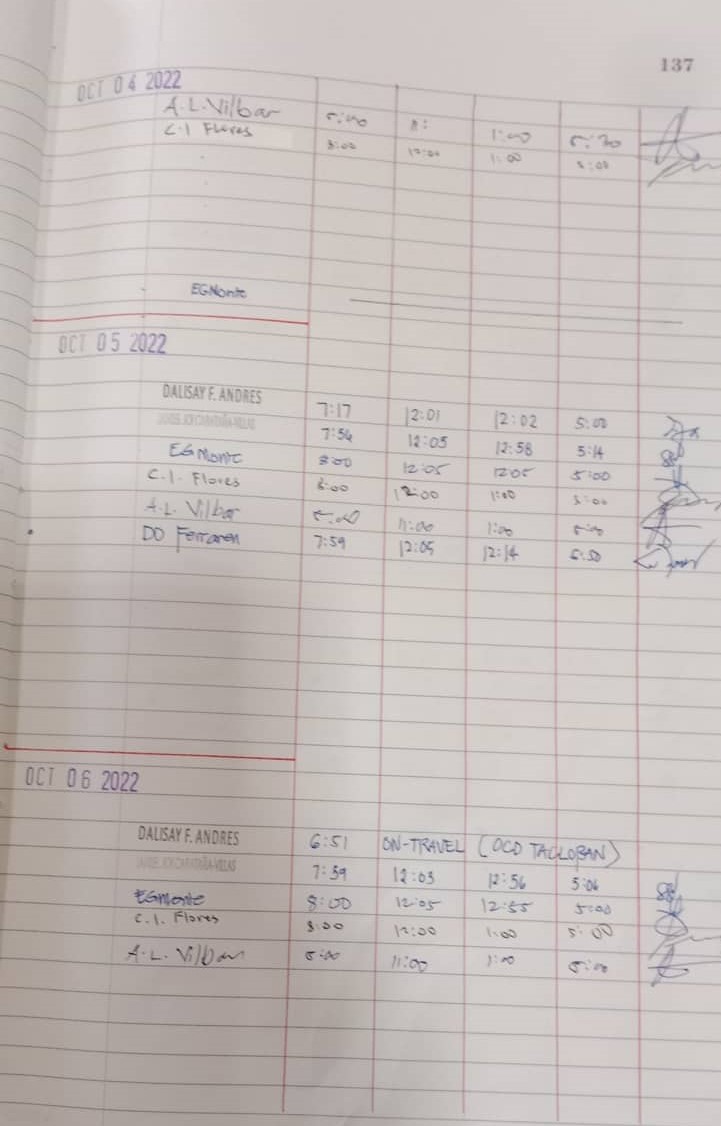 137
OCT 04 2022
A.L. Vilbar 5:00 11: 1:00 5:30
C.I Flores 8:00 12:00 1:00 5:00
EGMonte
OCT 05 2022
DALISAY F. ANDRES 7:17 12:01 12:02 5:00
7:54 12:03 12:58 5:14
EGMonte 8:00 12:05 1205 5:00
C.I. Flores 8:00 12:00 1:00 5:00
A.L. Vilbar 5:00 11:00 1:00 5:00
DD Ferraren 7:59 12:05 12:14 5:30
OCT 06 2022
DALISAY F. ANDRES 6:51 ON-TRAVEL (OCD TACLOBAN)
7:59 12:03 12:56 5:06
EGMonte 8:00 12:05 12:55 5:00
C.I. Flores 8:00 12:00 1:00 5:00
A.L. Vilbar 5:00 11:00 1:00 5:00